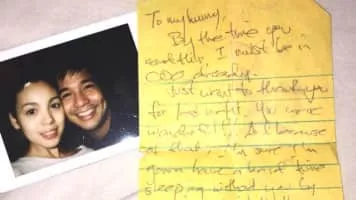 To my hunny,
By the time you
read this, I must be in
CDO already.
Just want to thank you
for last night. You were
wonderful!! And because
of that ... I'm sure I'm
gonna have a hard time
sleeping without you by